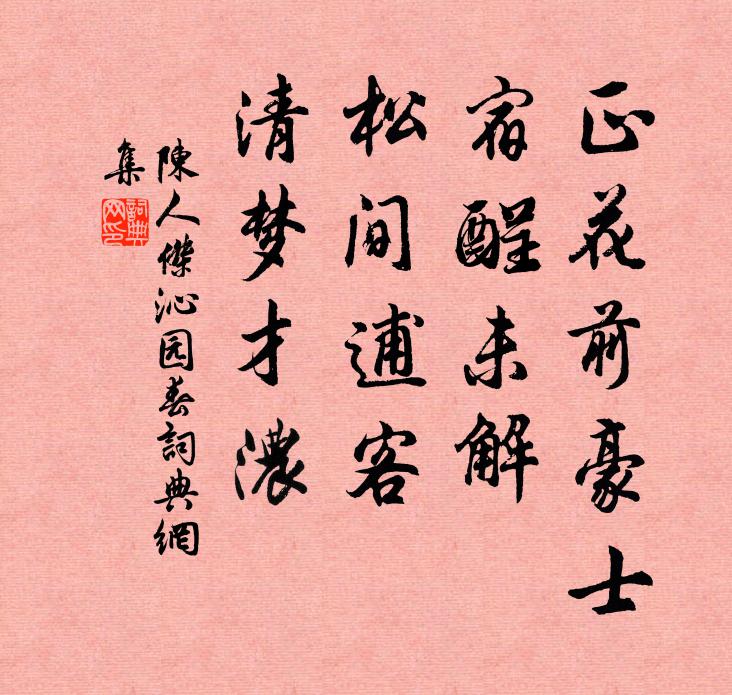 正花前豪士
宿酲未解
松间逋客
清梦才濃
陳人傑沁园春詞典網
集
詞典网印